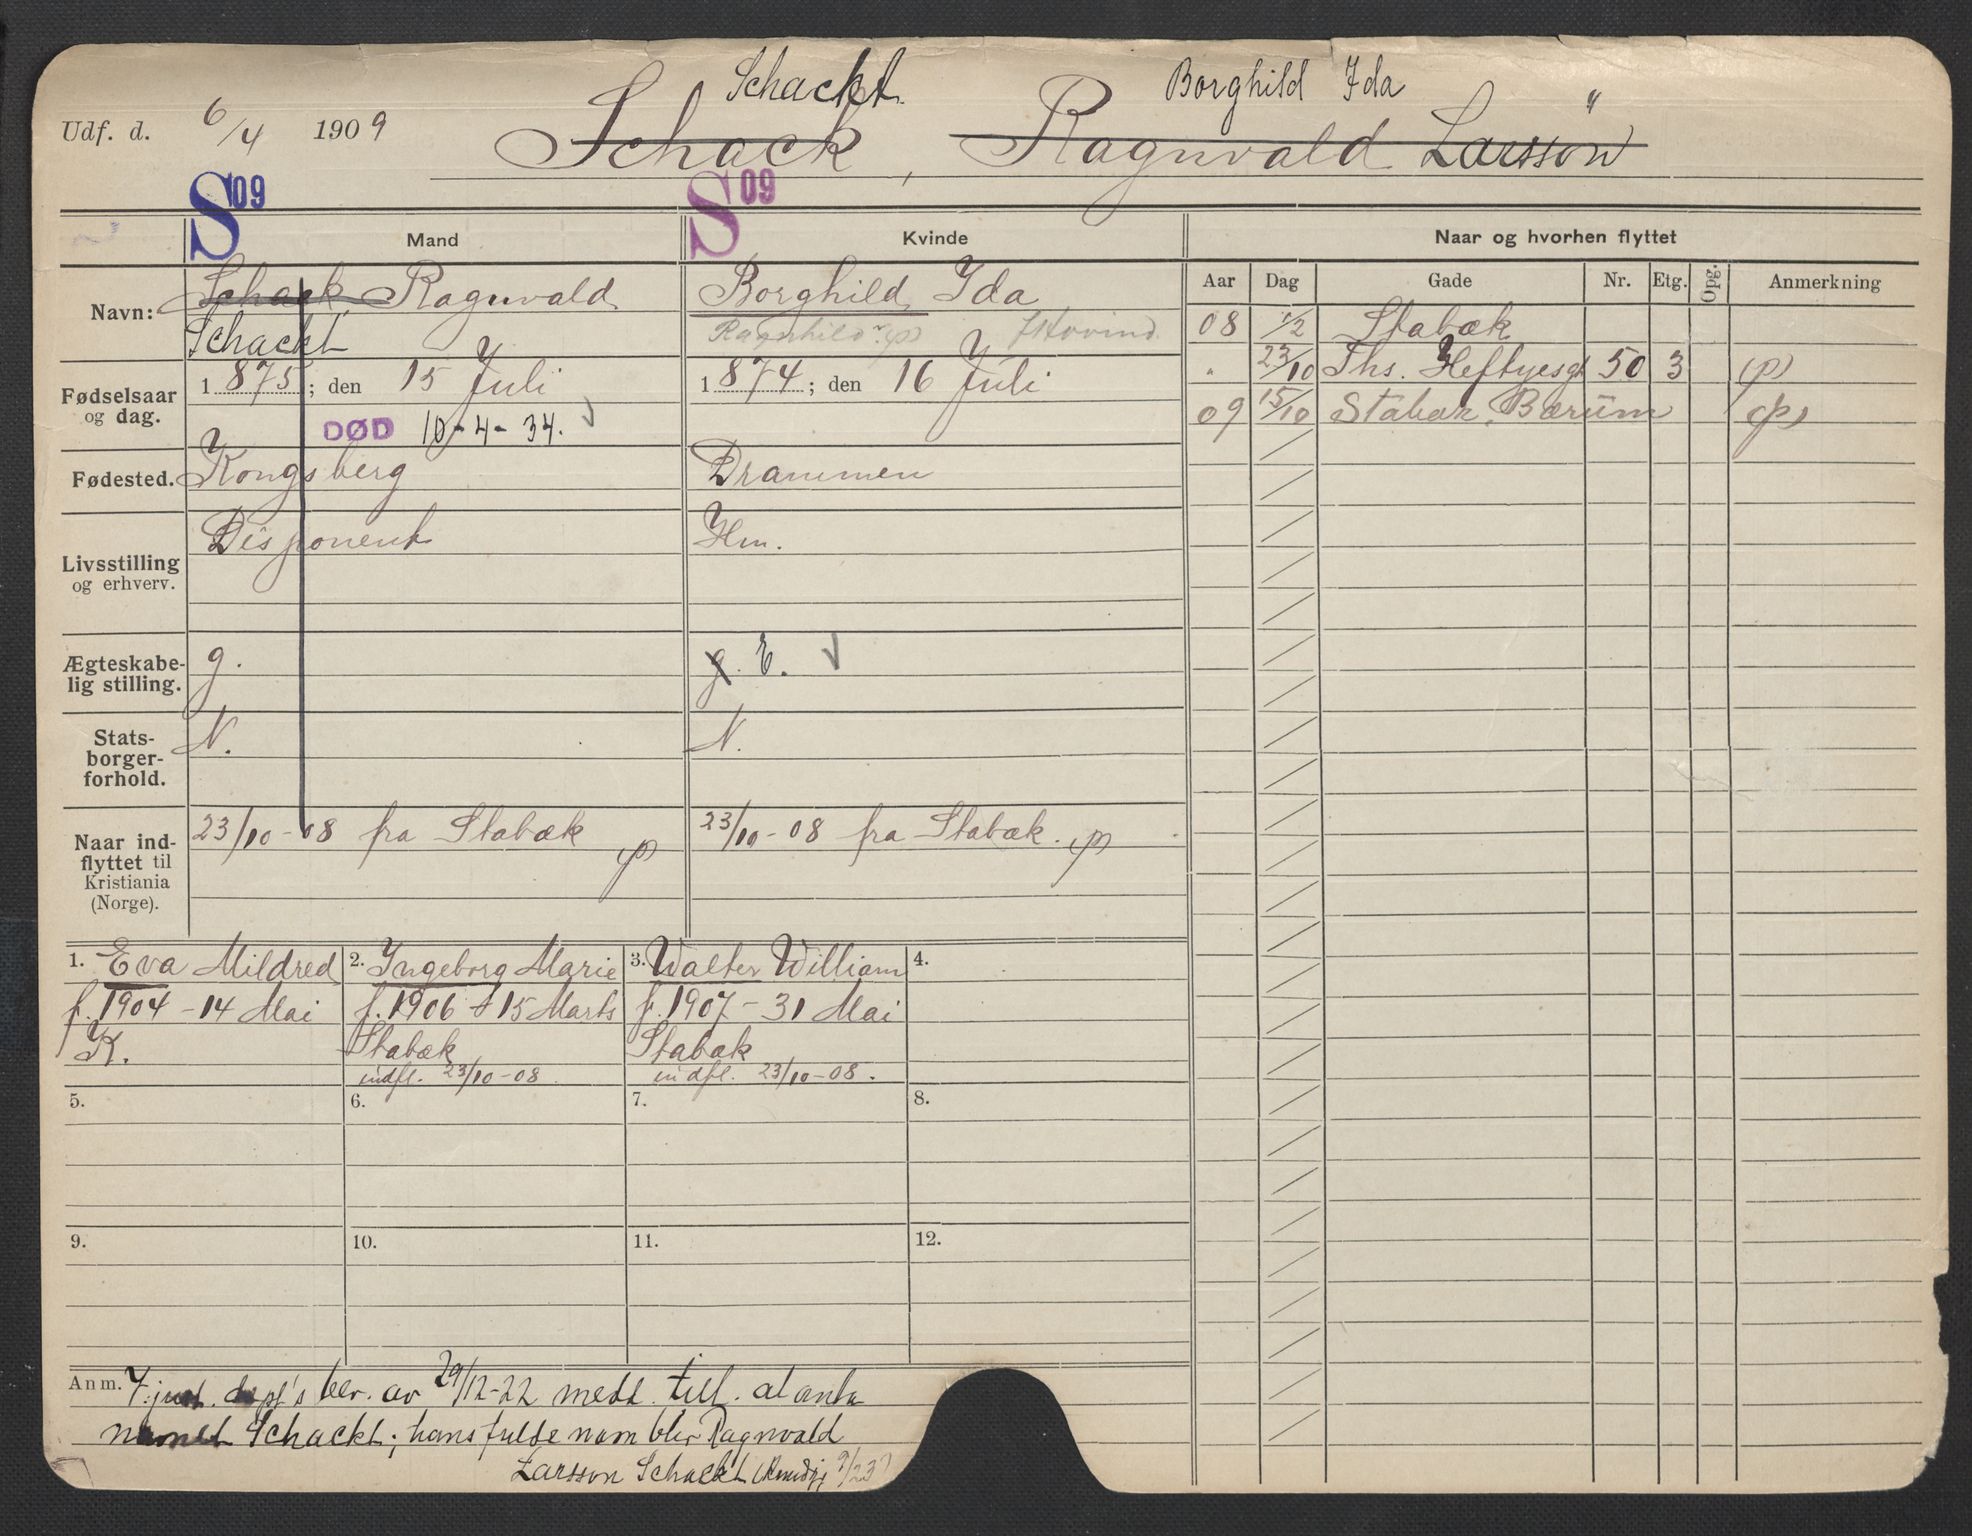 Schackt. Borghild Ida
Udf. d. 6/4 1909 Schack, Ragnvald Larsson
S09 S09
Mand Kvinde Naar og hvorhen flyttet
Aar Dag Gade Nr. Etg. Opg. Anmerkning
Navn: Schack, Ragnvald Borghild, Ida
Schackt Ragnhild (p) f Hovind
08 1/2 Stabæk
" 23/10 Ths. Heftyesgt 50 3 (p)
09 15/10 Stabæk, Bærum (p)
Fødselsaar og dag. 1875; den 15 Juli 1874; den 16 Juli
DØD 10-4-34.
Fødested. Kongsberg Drammen
Livsstilling og erhverv. Disponent Hm.
Ægteskabe-
lig stilling. g. g. E.
Stats-
borger-
forhold. N. N.
Naar ind-
flyttet til
Kristiania
(Norge). 23/10-08 fra Stabæk (p) 23/10-08 fra Stabæk. (p)
1. Eva Mildred 2. Ingeborg Marie 3. Walter William 4.
f. 1904 - 14 Mai f. 1906 15 Marts f. 1907 - 31 Mai
K. Stabæk Stabæk
indfl. 23/10-08 indfl. 23/10-08.
5. 6. 7. 8.
9. 10. 11. 12.
Anm. just. dept's bev. av 29/12-22 medt. till. at anta
navnet Schackt; hans fulde navn blir Ragnvald
Larsson Schackt